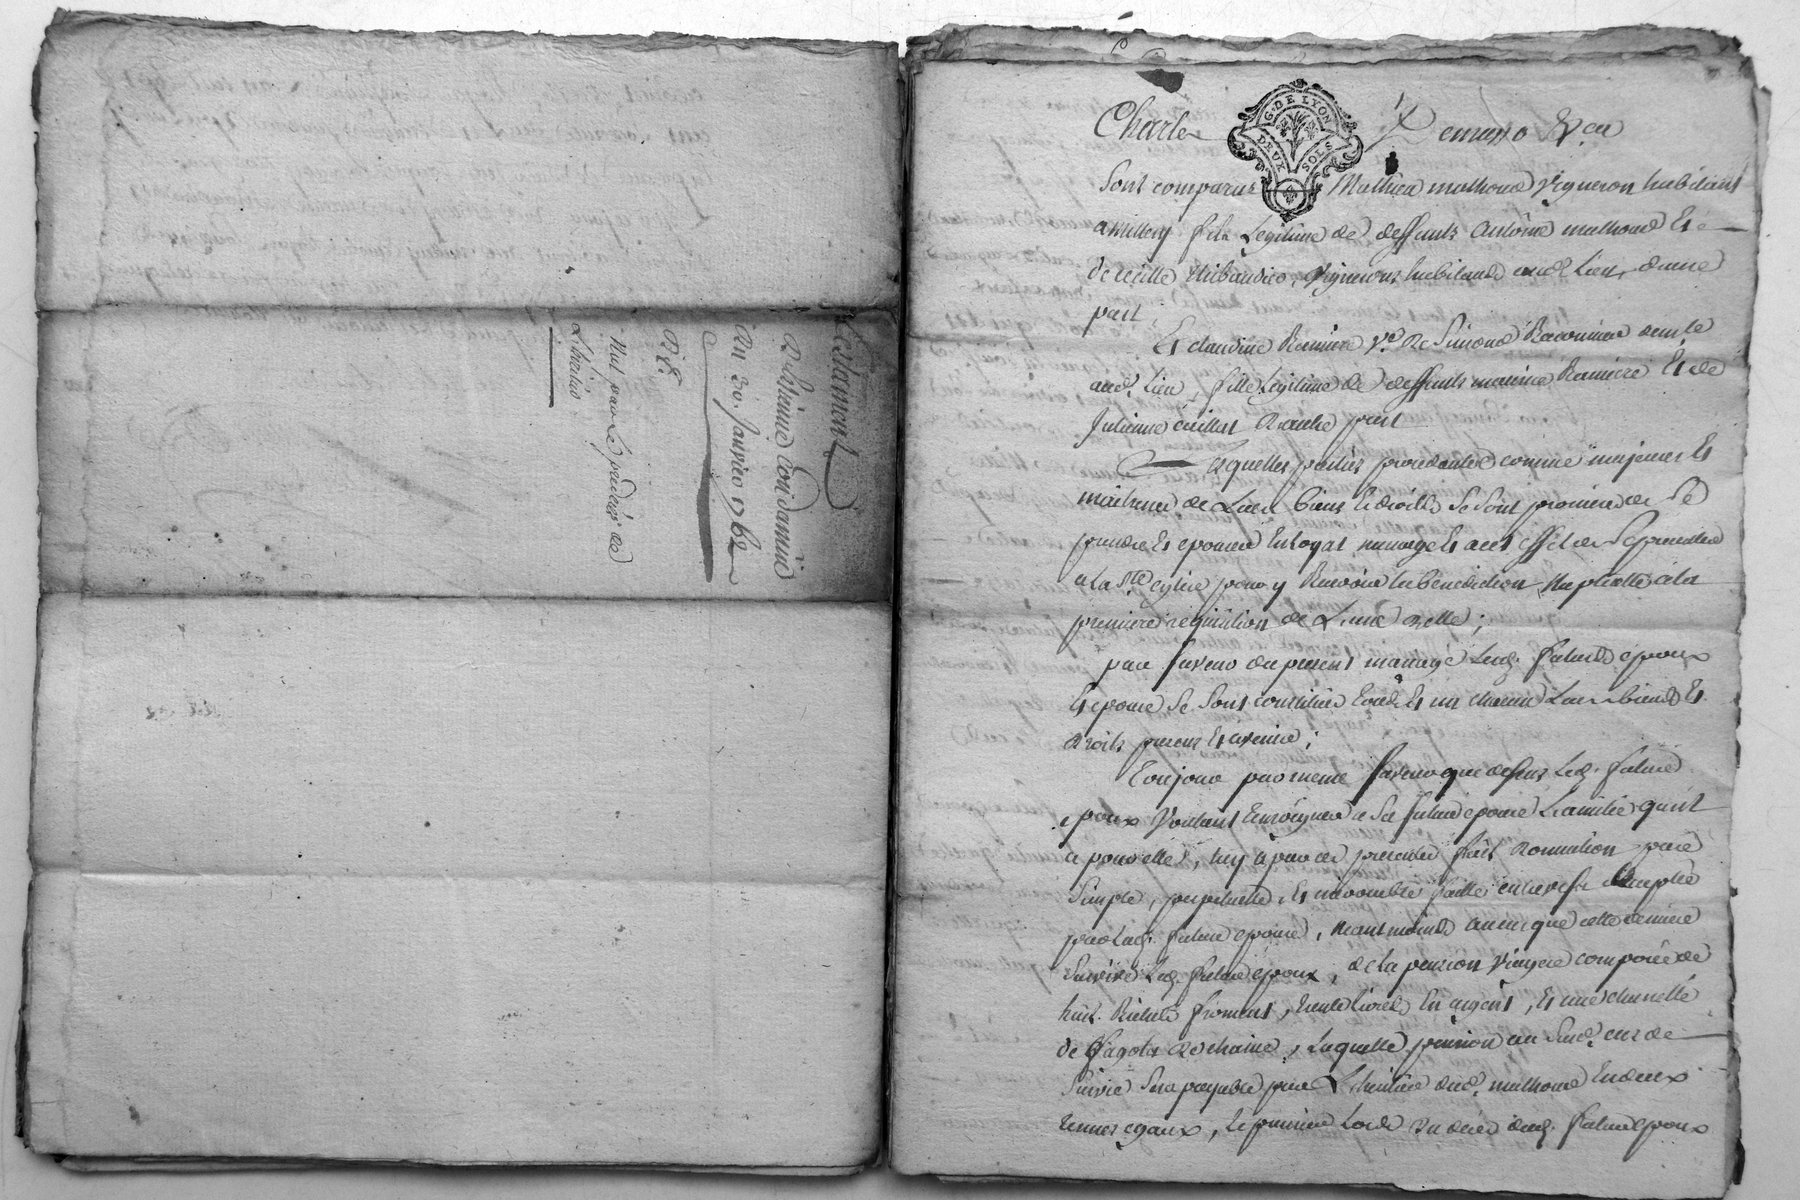 Testament
D'Etienne Condamine
Du 30. Janvier 1762
Charle Demasso &ca
G. DE LYON
DEUX SOLS
Sont comparus Mathieu mathoud vigneron habitant
a millery fils Legitime de deffunts Antoine mathoud Et
de vignerons habitands aud. Lieu, dune
part
Et claudine Ramiere ve. de Simond demte.
aud. Lieu, fille Legitime de deffunts Ramiere Et de
Julienne dautre part
Lesquelles parties procedantes comme majeures Et
maitresses de Leurs biens Et droits Se Sont promises de Se
prendre Et epouser En Loyal mariage Et a cet effet de Se presenter
a La Ste. eglise pour y Recevoir La benediction Nuptialle a La
premiere requisition de L'une delle;
par faveur du present mariage Lesd. futurs epoux
Et epouse Se Sont constitués tous Et un chacun Leurs biens Et
droits presens Et avenir;
Toujour par meme faveur que dessus Led. futur
epoux voulant temoigner a Sa future epouse L'amitié qu'il
a pour elle, luy a par ces presentes fait donnation pure
Simple, perpetuelle, Et irrevocable faitte entre vifs acceptée
par Lad. future epouse, neantmoinds au cas que cette derniere
Survive Led. futur epoux, de La pension viagere composée de
huit Bichets froment, trente livres En argent, Et une charrette
de fagots de chaine, Laquelle pension au Susd. cas de
Survie Sera payable par L'heritier dud. mathoud En deux
termes egaux, Le premier Lors du deces dud. futur epoux